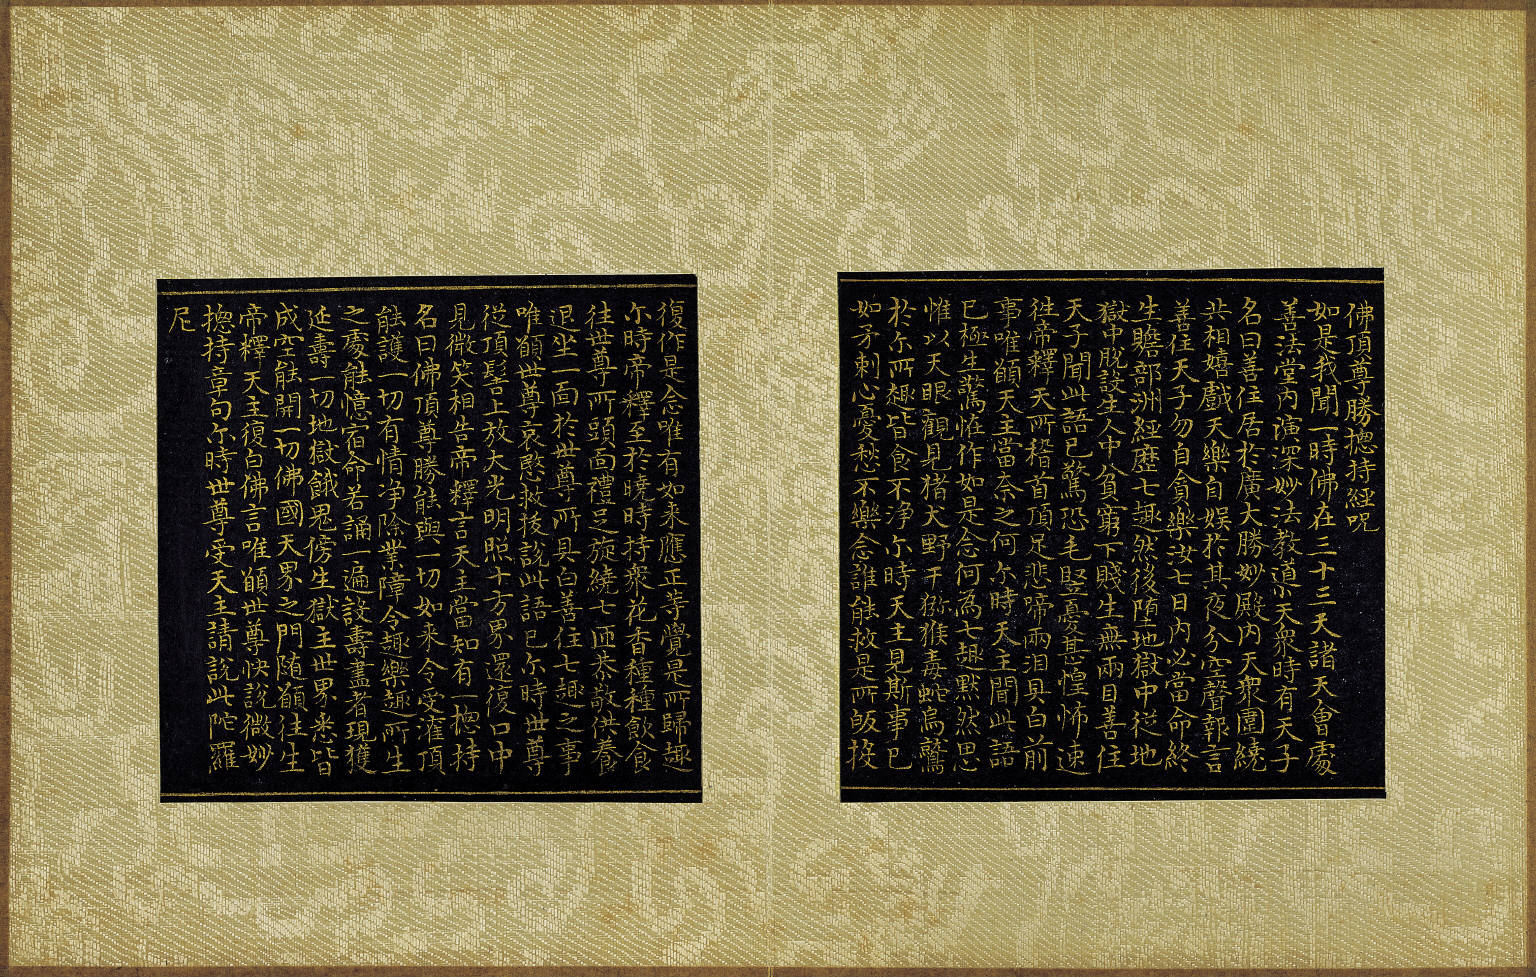 佛頂尊勝揔持經呪
如是我聞一時佛在三十三天諸天會處
善法堂內演深妙法教道尒天衆時有天子
名曰善住居於廣大勝妙殿內天衆圍繞
共相嬉戲天樂自娱於其夜分空聲報言
善住天子勿自貪樂汝七日內必當命終
生贍部洲經歷七趣然後墮地獄中從地
獄中脫設生人中貧窮下賤生無兩目善住
天子聞此語已驚恐毛竪憂甚惶怖速
往帝釋天所稽首頂足悲啼兩泪具白前
事唯願天主當奈之何尒時天主聞此語
已極生驚惟作如是念何為七趣默然思
惟以天眼觀見猪犬野干猕猴毒蛇烏鷲
於尒所趣皆食不淨尒時天主見斯事已
如矛刺心憂愁不樂念誰能救是所皈投
復作是念唯有如来應正等覺是所歸趣
尒時帝釋至於曉時持衆花香種種飲食
往世尊所頭面禮足旋繞七匝恭敬供養
退坐一面於世尊所具白善住七趣之事
唯願世尊哀愍救拔說此語已尒時世尊
從頂髻上放大光明照十方界還復口中
見微笑相告帝釋言天主當知有一揔持
名曰佛頂尊勝能與一切如来令受灌頂
能護一切有情净除業障令趣樂趣所生
之處能憶宿命若誦一遍設壽盡者現獲
延壽一切地獄餓鬼傍生獄主世界悉皆
成空能開一切佛國天界之門随願往生
帝釋天主復白佛言唯願世尊快說微妙
揔持章句尒時世尊受天主請說此陀羅
尼